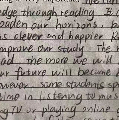 dge through reading. It
roaden our horizons
is clever and happier. Re
mprove our study. The m
ad the more we will
ur future will become b
wever some students sp
ime in listening to music
g TV or playing online